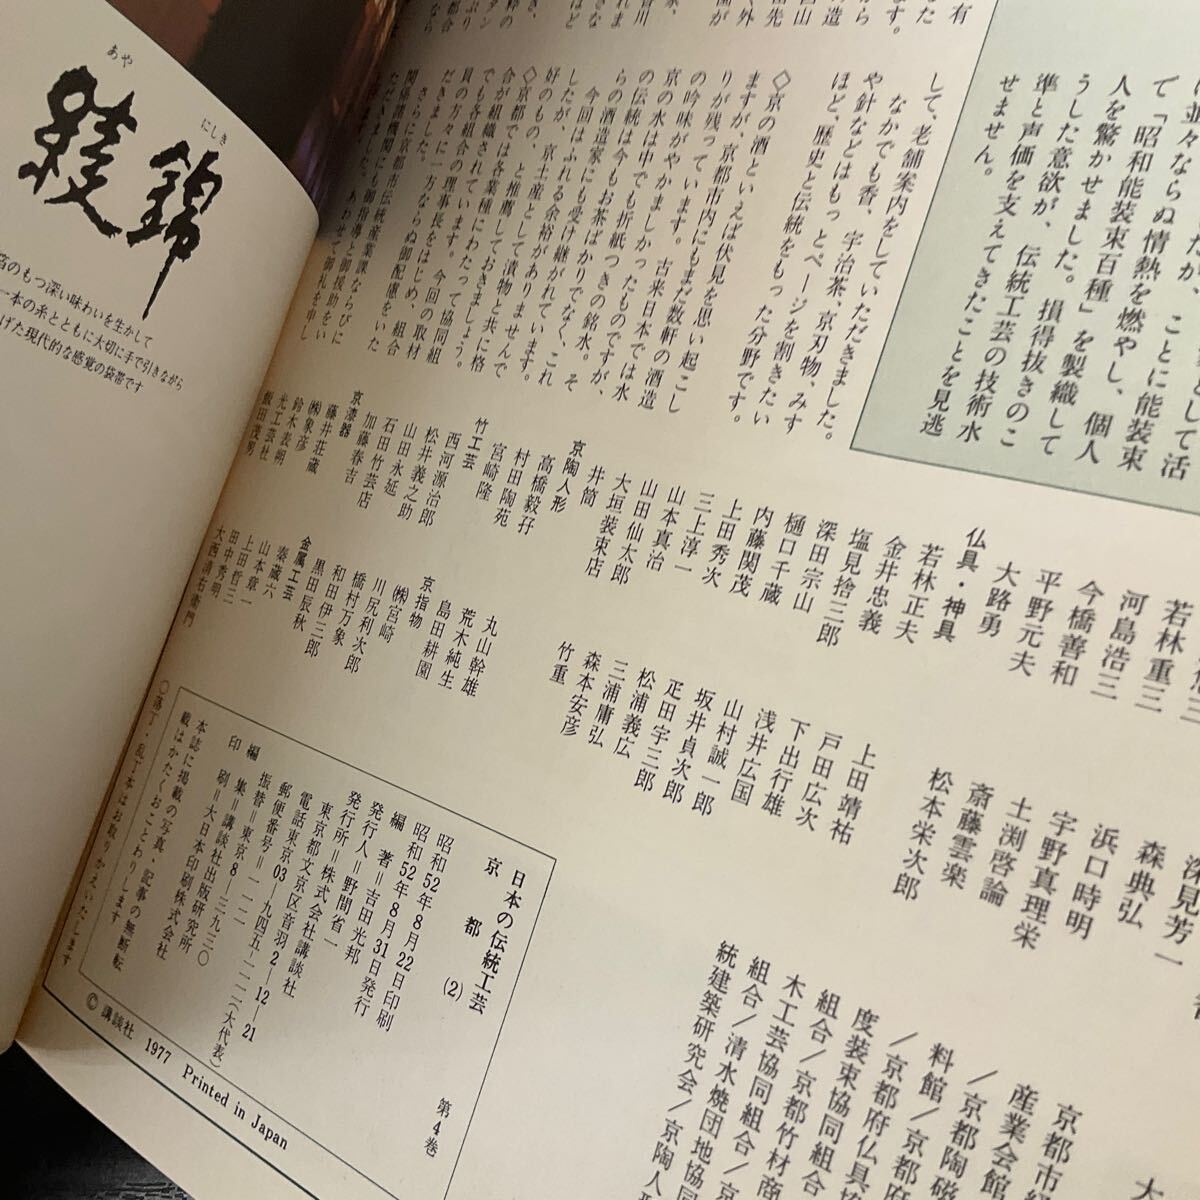 で「昭和能装束百種」を製織して
人を驚かせました。損得抜きのこ
うした意欲が、伝統工芸の技術水
準と声価を支えてきたことを見逃
せません。
して、老舗案内をしていただきました。
なかでも香、宇治茶、京刃物、みす
や針などはもっとページを割きたい
ほど、歴史と伝統をもった分野です。
◇京の酒といえば伏見を思い起こし
ますが、京都市内にもまだ数軒の酒造
りが残っています。古来日本では水
の吟味がやかましかったものですが、
京の水は中でも折紙つきの銘水。そ
の伝統は今もお茶ばかりでなく、これ
らの酒造家にも受け継がれています。
今回はふれる余裕がありませんで
したが、京土産として漬物と共に格
好のもの、と推薦しておきましょう。
◇京都では各業種にわたって協同組
合が組織されています。今回の取材
でも各組合の理事長をはじめ、組合
員の方々に一方ならぬ御配慮をいた
だきました。
さらに京都市伝統産業課ならびに
関係諸機関にも御指導と御援助をい
ただきました。あわせて御礼を申し
若林重三
河島浩三
今橋善和
平野元夫
大路勇
仏具・神具
若林正夫
金井忠義
塩見捨三郎
深田宗山
樋口千蔵
内藤関茂
上田秀次
三上淳一
山本真治
山田仙太郎
大垣装束店
井筒
京陶人形
高橋毅孖
村田陶苑
宮崎隆
竹工芸
西河源治郎
松井義之助
山田永延
石田竹芸店
加藤春吉
京漆器
藤井荘蔵
㈱象彦
鈴木表朔
光工芸社
飯田茂男
深見芳一
森典弘
浜口時明
宇野真理栄
土渕啓諭
斎藤雲楽
松本栄次郎
上田靖祐
戸田広次
下出行雄
浅井広国
山村誠一郎
坂井貞次郎
疋田宇三郎
松浦義広
三浦庸弘
森本安彦
竹重
丸山幹雄
荒木純生
島田耕園
京指物
㈱宮崎
川尻利次郎
橋村万象
和田伊三郎
黒田辰秋
金属工芸
秦蔵六
山本章一
上田哲三
田中秀明
大西清右衛門
産業会館
/京都陶磁
料館/京都府
/京都府仏具協
度装束協同組合
組合/京都竹材商
木工芸協同組合/
組合/清水焼団地協同
統建築研究会/京陶人形
日本の伝統工芸 第4巻
京都(2)
昭和52年8月22日印刷
昭和52年8月31日発行
編著=吉田光邦
発行人=野間省一
発行所=株式会社講談社
東京都文京区音羽2―12―21
電話東京03―九四五―一一一一(大代表)
郵便番号=一一二
振替=東京8―三九三〇
編集=講談社出版研究所
印刷=大日本印刷株式会社
本誌に掲載の写真、記事の無断転
載はかたくおことわりします
○落丁・乱丁本はお取りかえいたします
©講談社 1977 Printed in Japan
あや にしき
綾錦
のもつ深い味わいを生かして
一本の糸とともに大切に手で引きながら
げた現代的な感覚の袋帯です